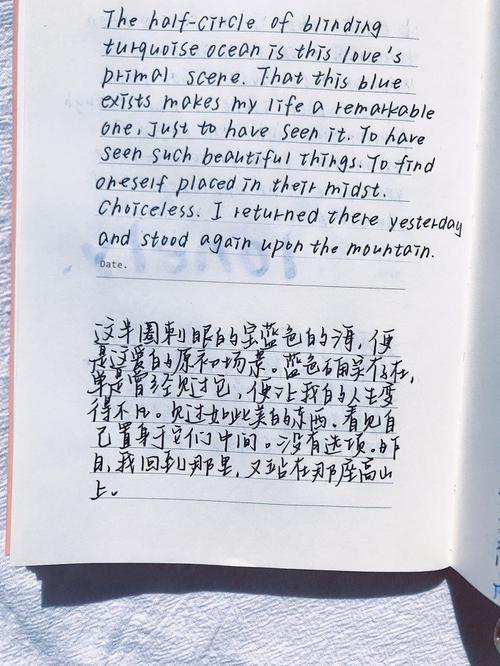 The half-circle of blinding
turquoise ocean is this love's
primal scene. That this blue
exists makes my life a remarkable
one, just to have seen it. To have
seen such beautiful things. To find
oneself placed in their midst.
Choiceless. I returned there yesterday
and stood again upon the mountain.
Date.
这半圈刺眼的宝蓝色的海，便
是这爱的原初场景。蓝色确实存在，
单是曾经见过它，便让我的人生变
得不凡。见过如此美的东西。看见自
己置身于它们中间。没有选项。昨
日，我回到那里，又站在那座高山
上。